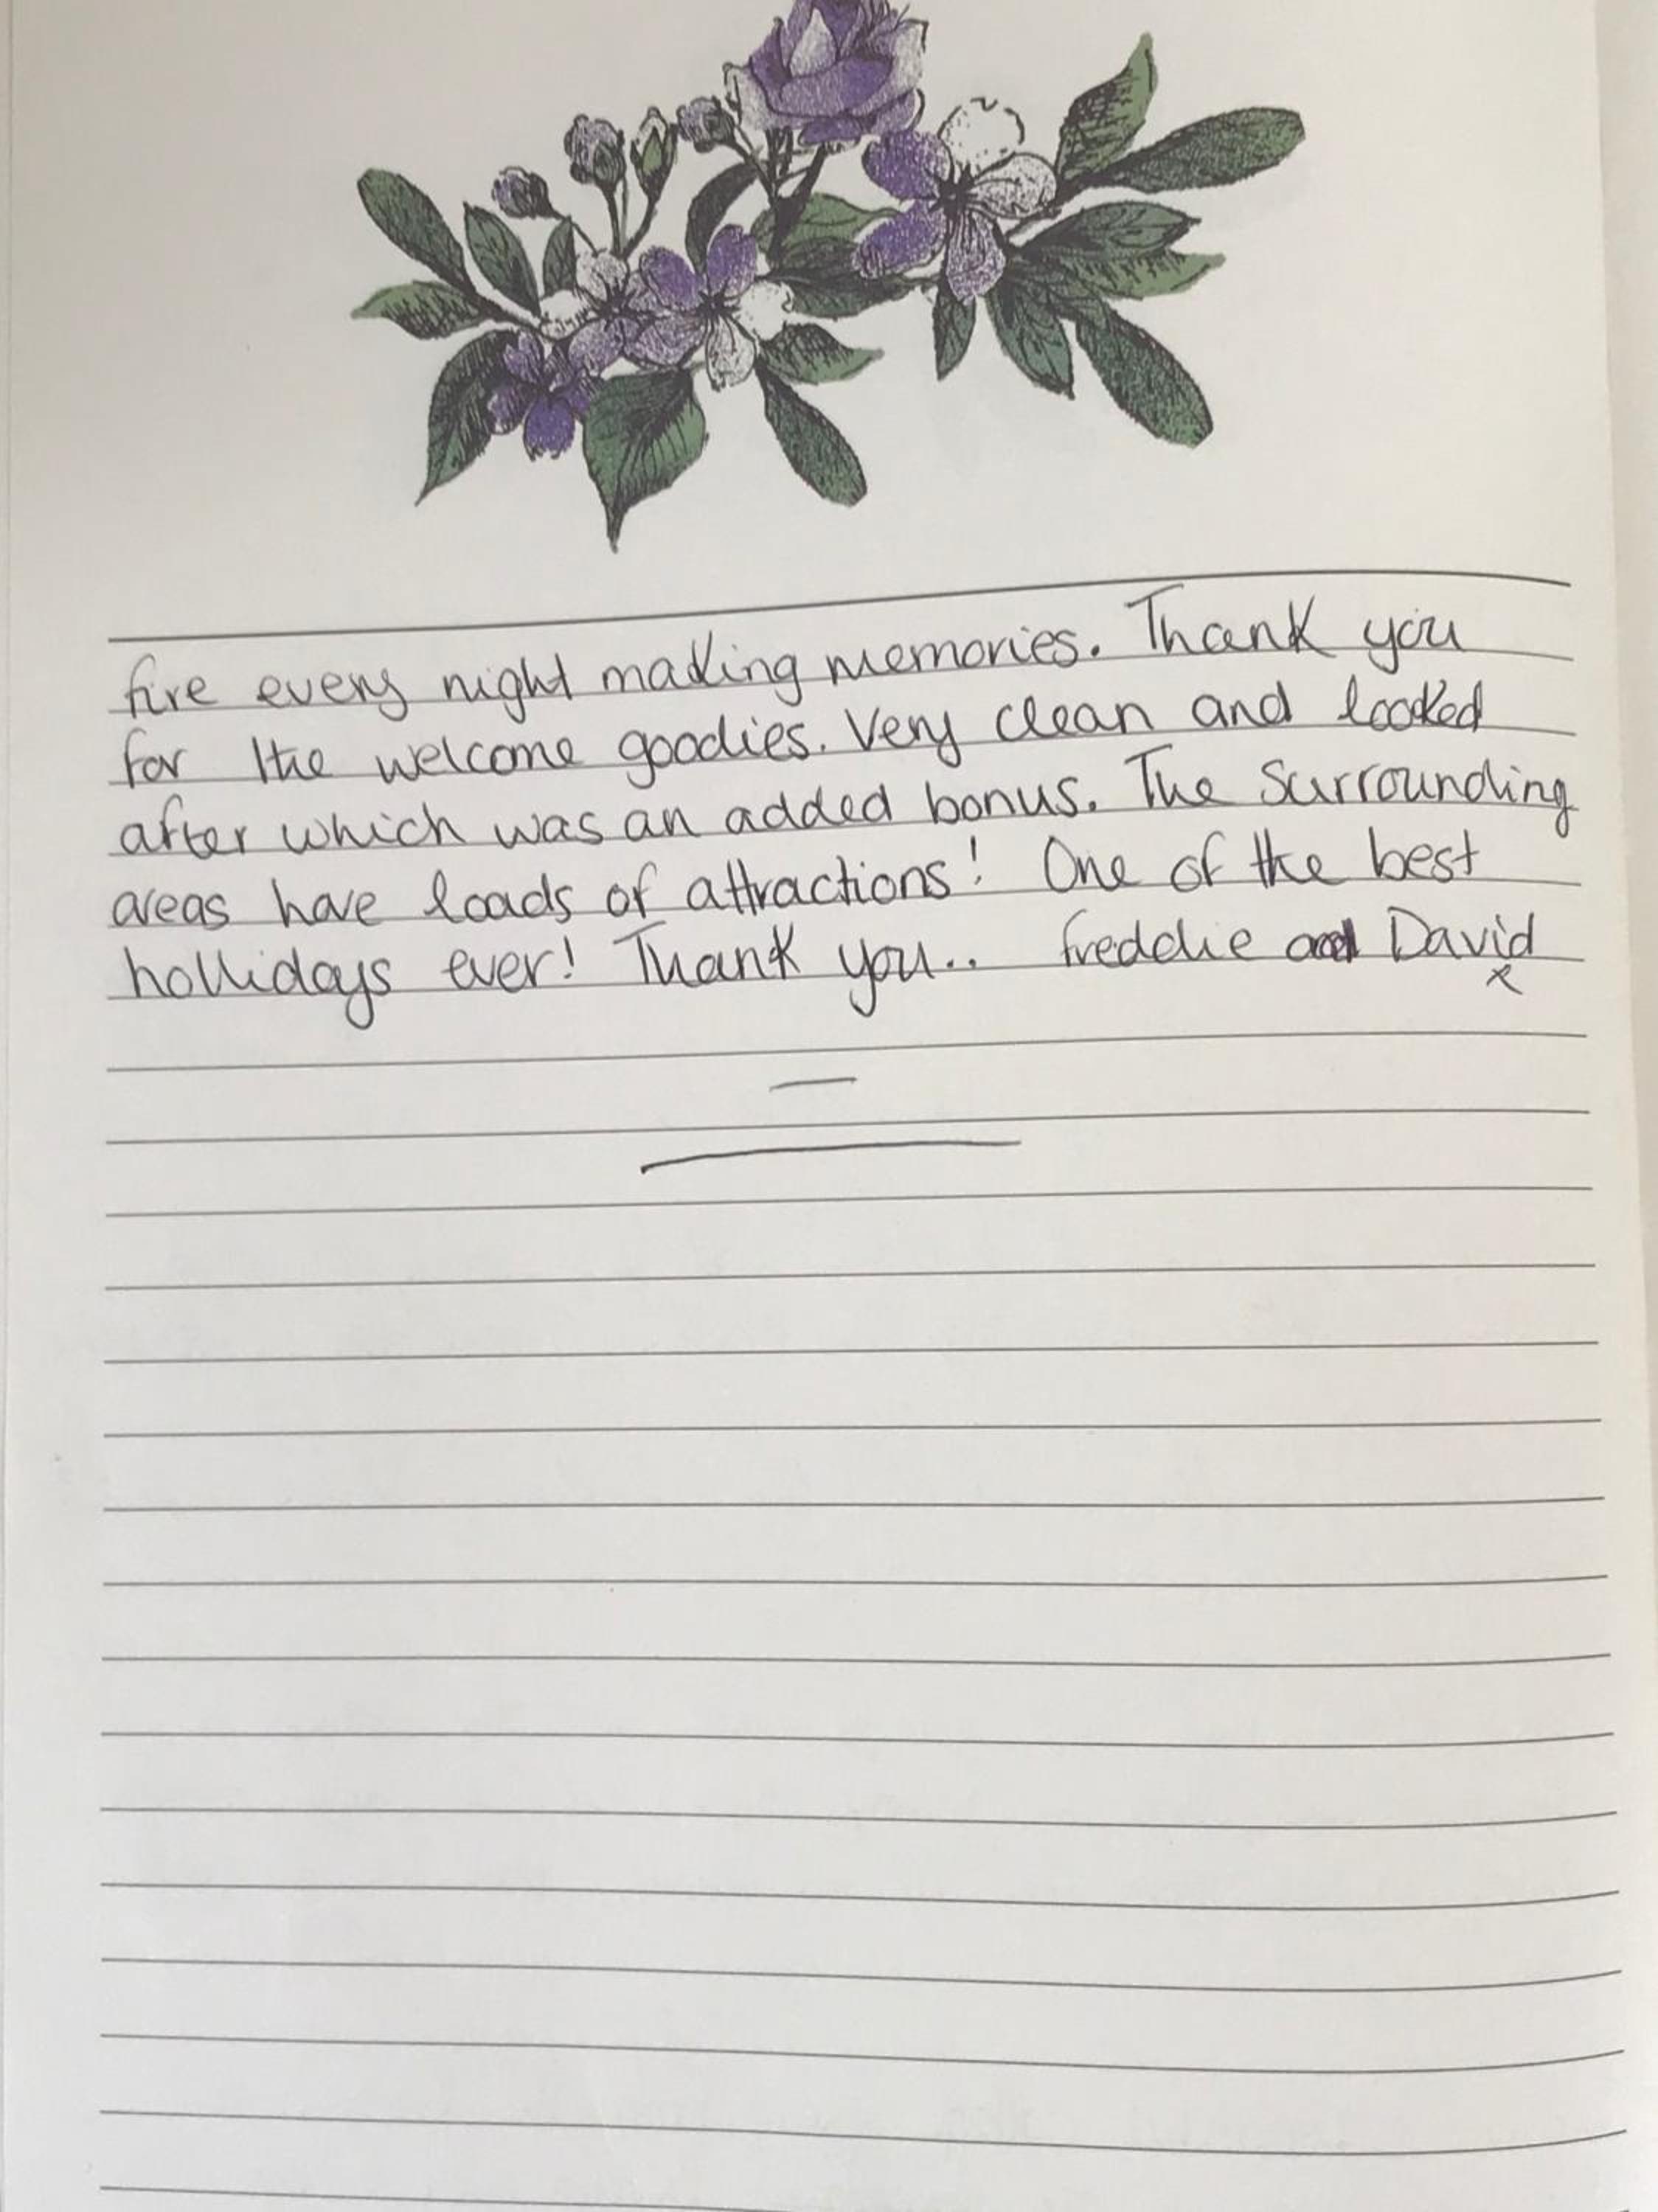 fire every night making memories. Thank you
for the welcome goodies. Very clean and looked
after which was an added bonus. The surrounding
areas have loads of attractions! One of the best
hollidays ever! Thank you.. freddie and David
x